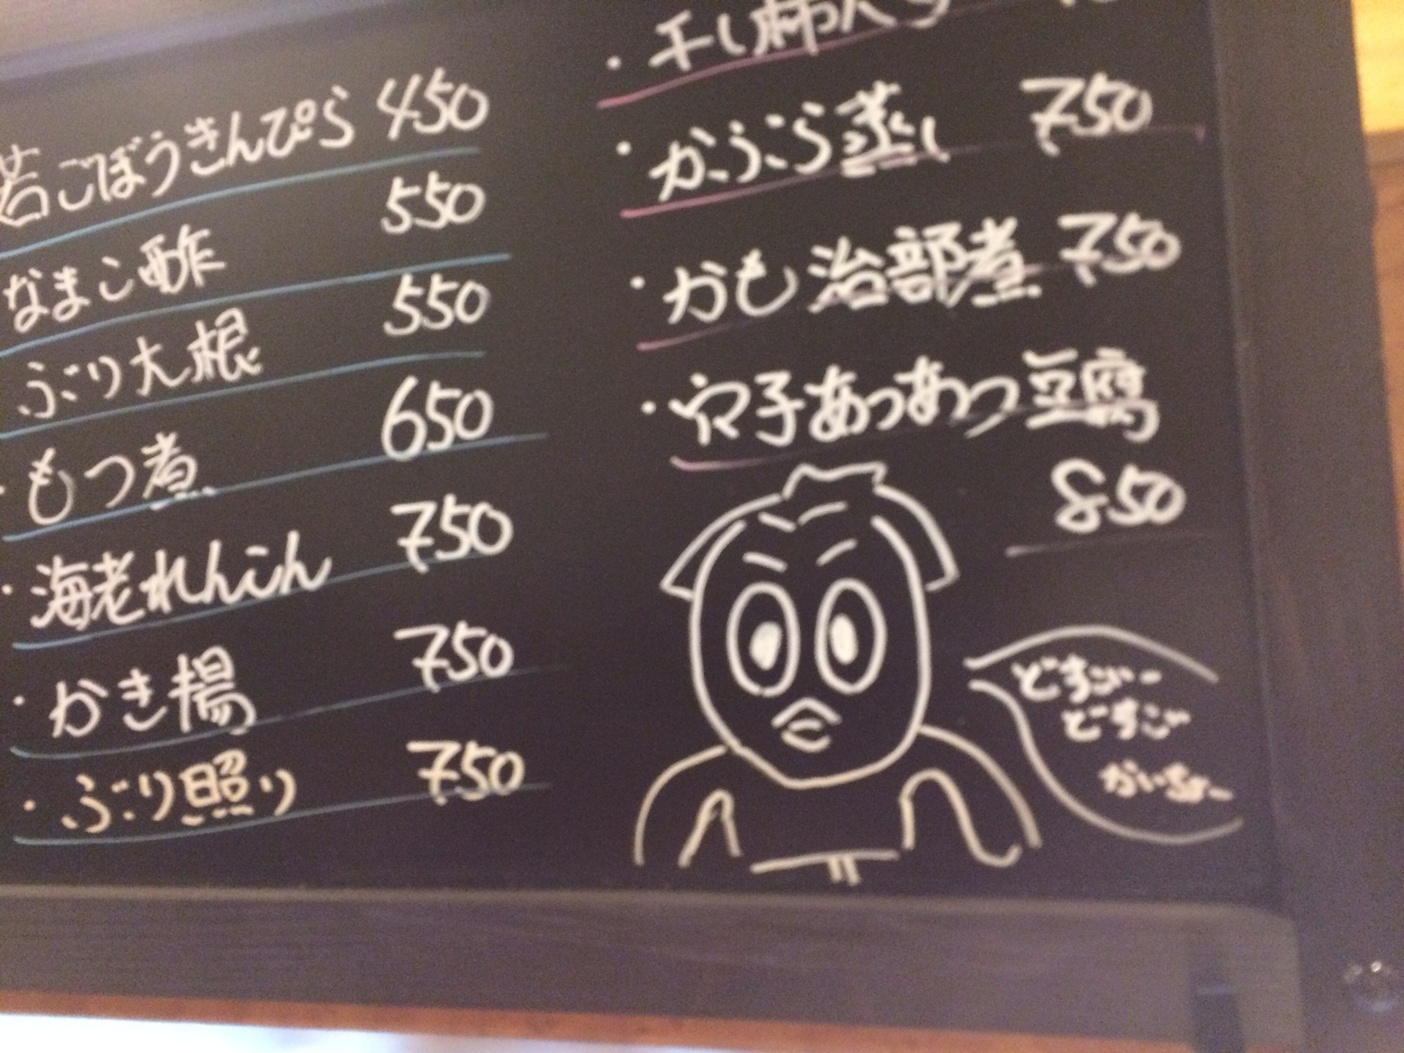 若ごぼうきんぴら 450
なまこ酢 550
ぶり大根 550
・もつ煮 650
・海老れんこん 750
・かき揚 750
・ぶり照り 750
・干し柿
・かぶら蒸し 750
・かも治部煮 750
・穴子あつあつ豆腐
850
どすこいー
どすこい